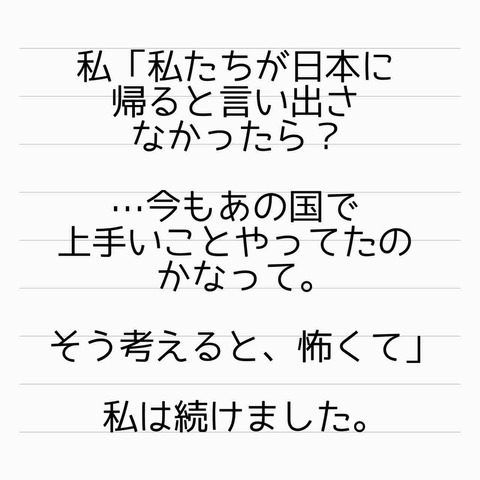 私「私たちが日本に
帰ると言い出さ
なかったら？
…今もあの国で
上手いことやってたの
かなって。
そう考えると、怖くて」
私は続けました。